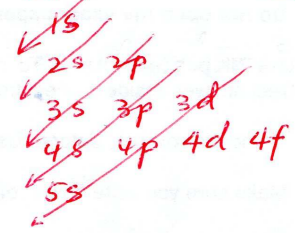 1s
2s 2p
3s 3p 3d
4s 4p 4d 4f
5s